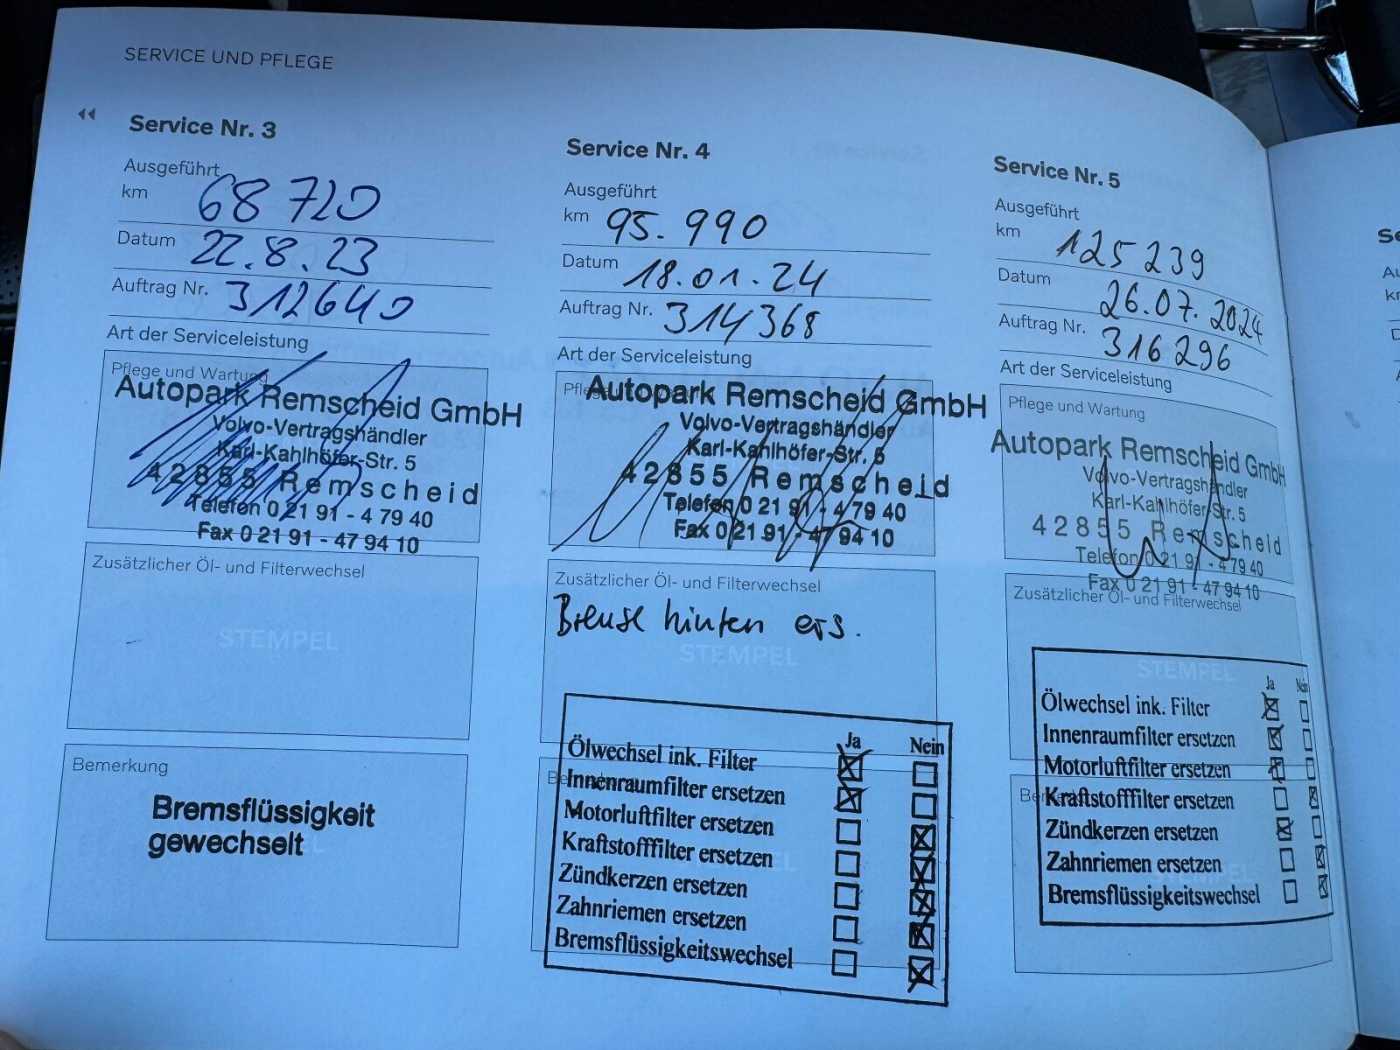 SERVICE UND PFLEGE
Service Nr. 3
Ausgeführt
km 68 720
Datum 22.8.23
Auftrag Nr. 312640
Art der Serviceleistung
Pflege und Wartung
Autopark Remscheid GmbH
Volvo-Vertragshändler
Karl-Kahlhöfer-Str. 5
42855 Remscheid
Telefon 0 21 91 - 4 79 40
Fax 0 21 91 - 47 94 10
Zusätzlicher Öl- und Filterwechsel
STEMPEL
Bemerkung
Bremsflüssigkeit
gewechselt
Service Nr. 4
Ausgeführt
km 95.990
Datum 18.01.24
Auftrag Nr. 314368
Art der Serviceleistung
Autopark Remscheid GmbH
Volvo-Vertragshändler
Karl-Kahlhöfer-Str. 5
42855 Remscheid
Telefon 0 21 91 - 4 79 40
Fax 0 21 91 - 47 94 10
Zusätzlicher Öl- und Filterwechsel
Bremse hinten ers.
STEMPEL
Ja Nein
Ölwechsel ink. Filter
Innenraumfilter ersetzen
Motorluftfilter ersetzen
Kraftstofffilter ersetzen
Zündkerzen ersetzen
Zahnriemen ersetzen
Bremsflüssigkeitswechsel
Service Nr. 5
Ausgeführt
km 125 239
Datum 26.07.2024
Auftrag Nr. 316296
Art der Serviceleistung
Pflege und Wartung
Autopark Remscheid GmbH
Volvo-Vertragshändler
Karl-Kahlhöfer-Str. 5
42855 Remscheid
Telefon 0 21 91 - 4 79 40
Fax 0 21 91 - 47 94 10
Zusätzlicher Öl- und Filterwechsel
STEMPEL
Ja Nein
Ölwechsel ink. Filter
Innenraumfilter ersetzen
Motorluftfilter ersetzen
Kraftstofffilter ersetzen
Zündkerzen ersetzen
Zahnriemen ersetzen
Bremsflüssigkeitswechsel